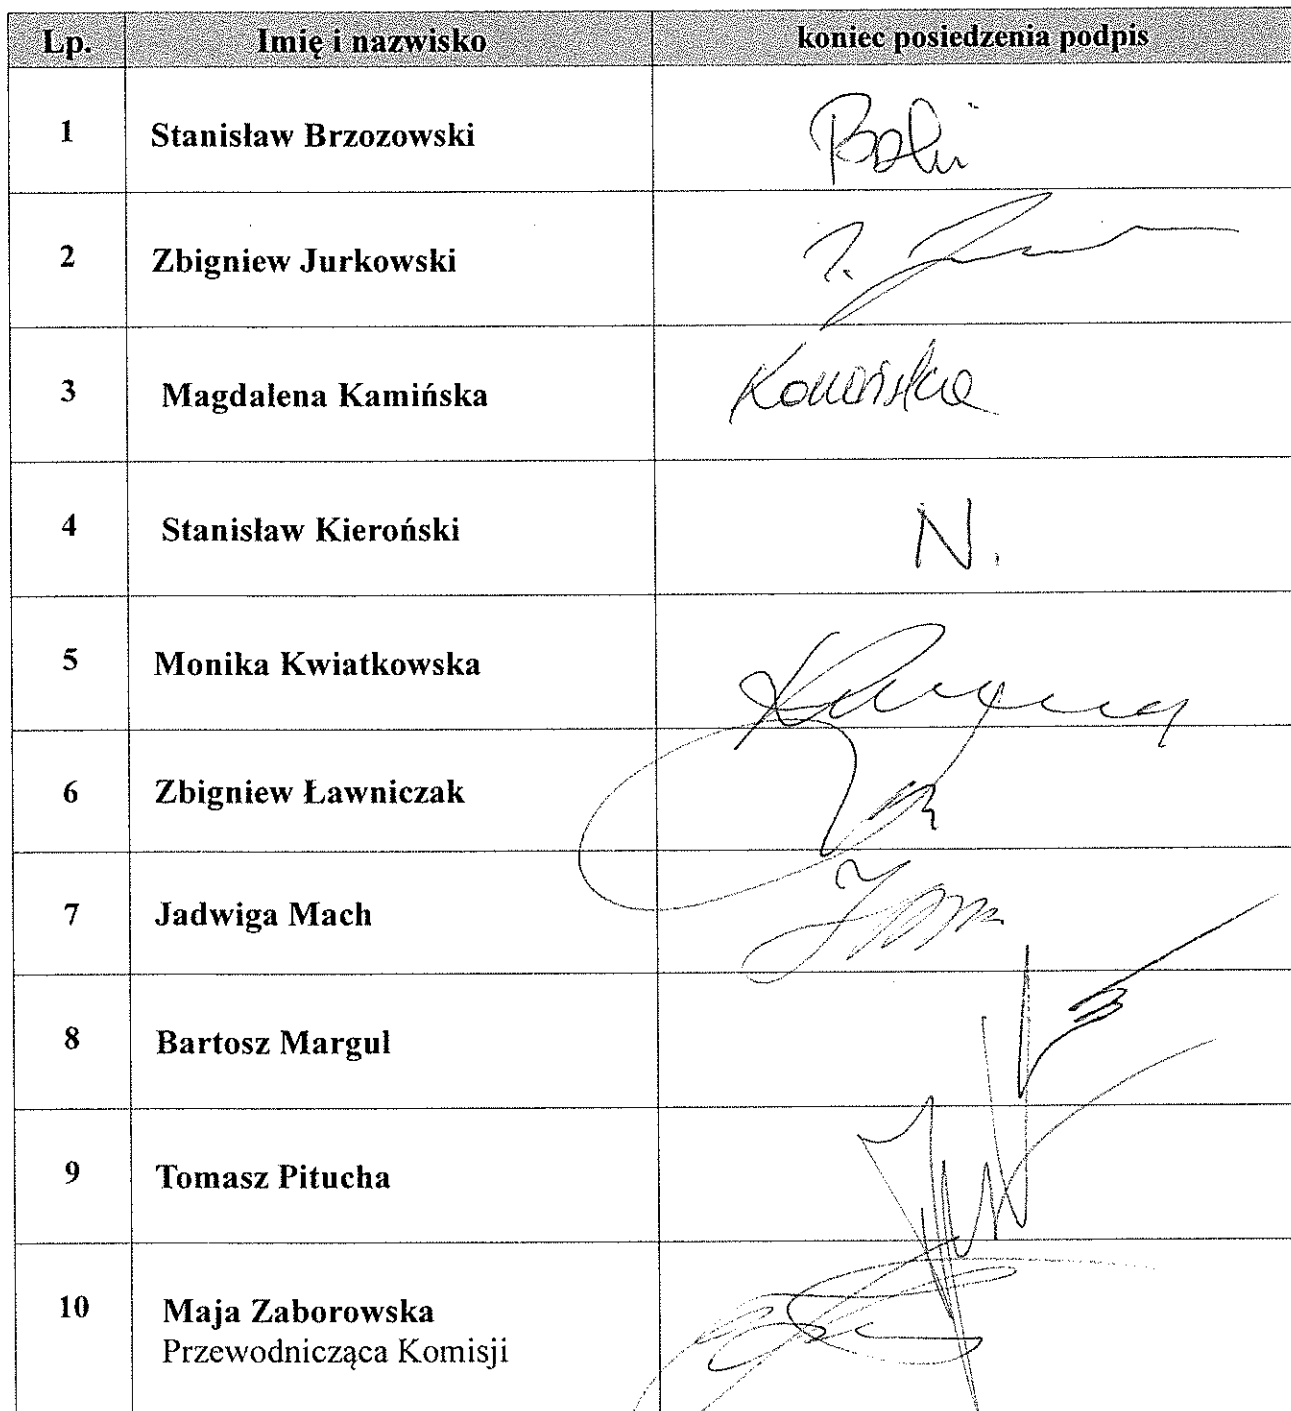 Lp. Imię i nazwisko koniec posiedzenia podpis
1 Stanisław Brzozowski
2 Zbigniew Jurkowski
3 Magdalena Kamińska Kamińska
4 Stanisław Kieroński N.
5 Monika Kwiatkowska
6 Zbigniew Ławniczak
7 Jadwiga Mach
8 Bartosz Margul
9 Tomasz Pitucha
10 Maja Zaborowska
Przewodnicząca Komisji